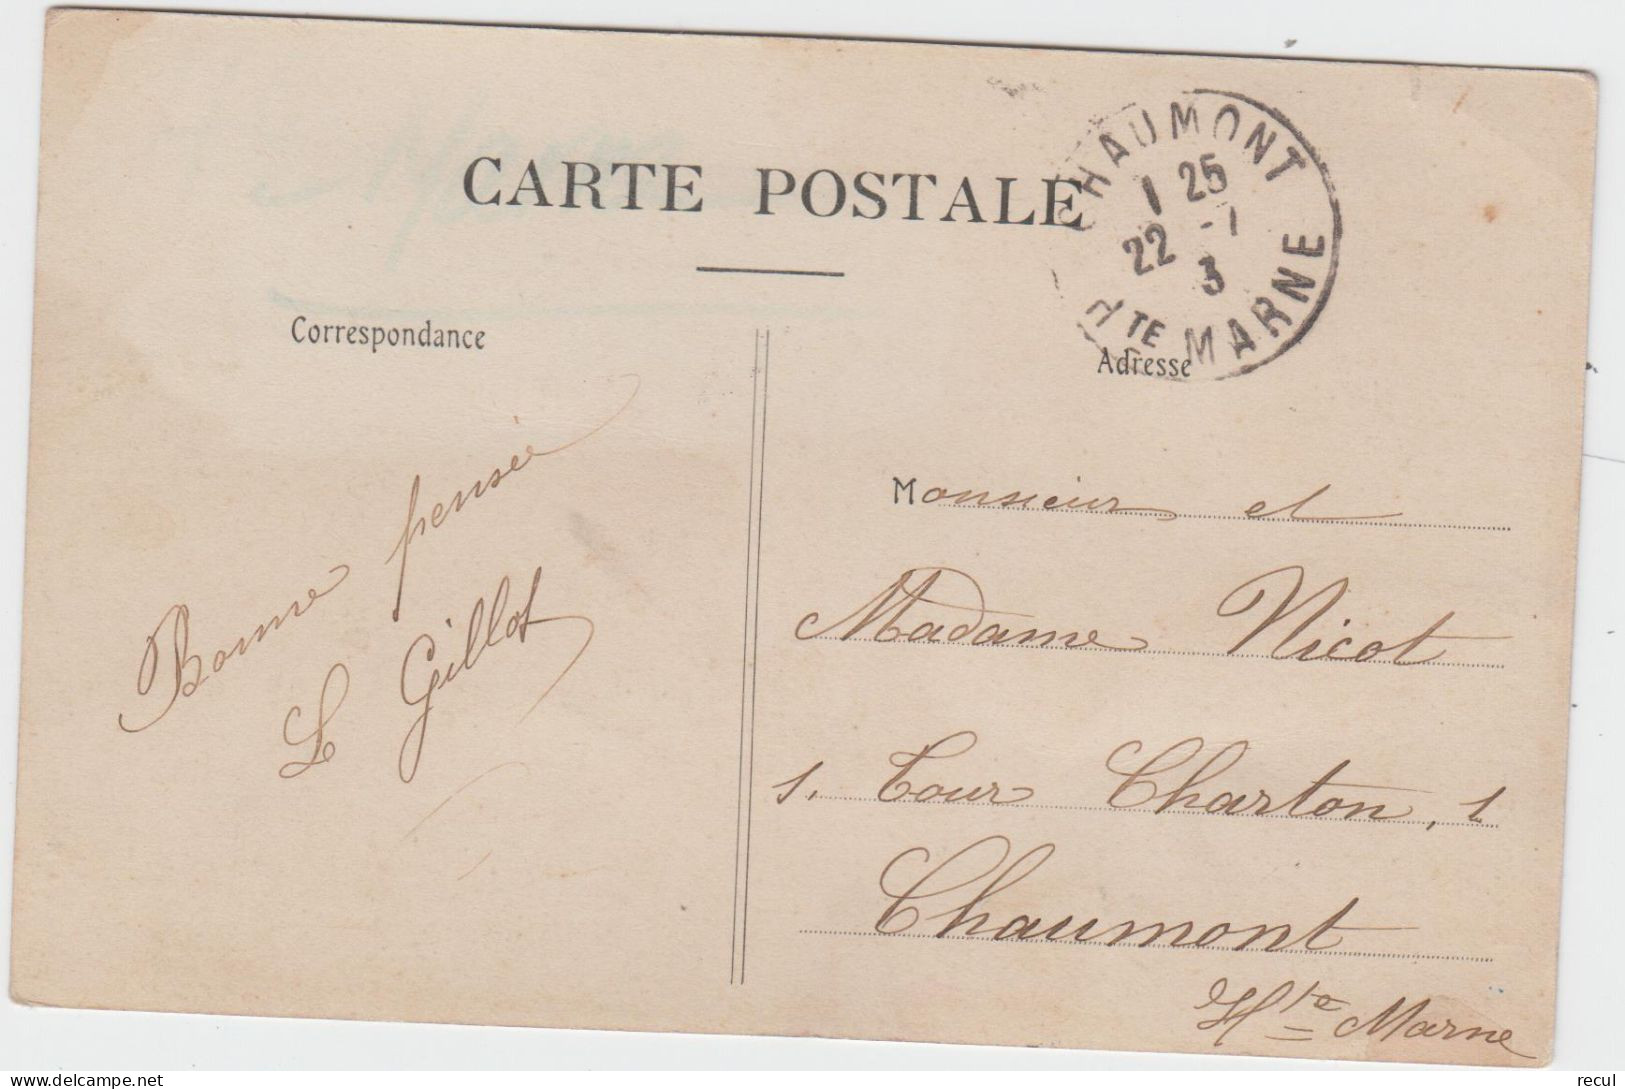 CARTE POSTALE
CHAUMONT
1 25
22 -1
3
HTE MARNE
Correspondance
Adresse
Bonne pensée
L Gillot
Monsieur et
Madame Nicot
1. Tour Charton, 1
Chaumont
Hte Marne
delcampe.net
recul